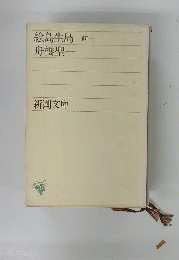 絵島生島 前
舟橋聖一
新潮文庫